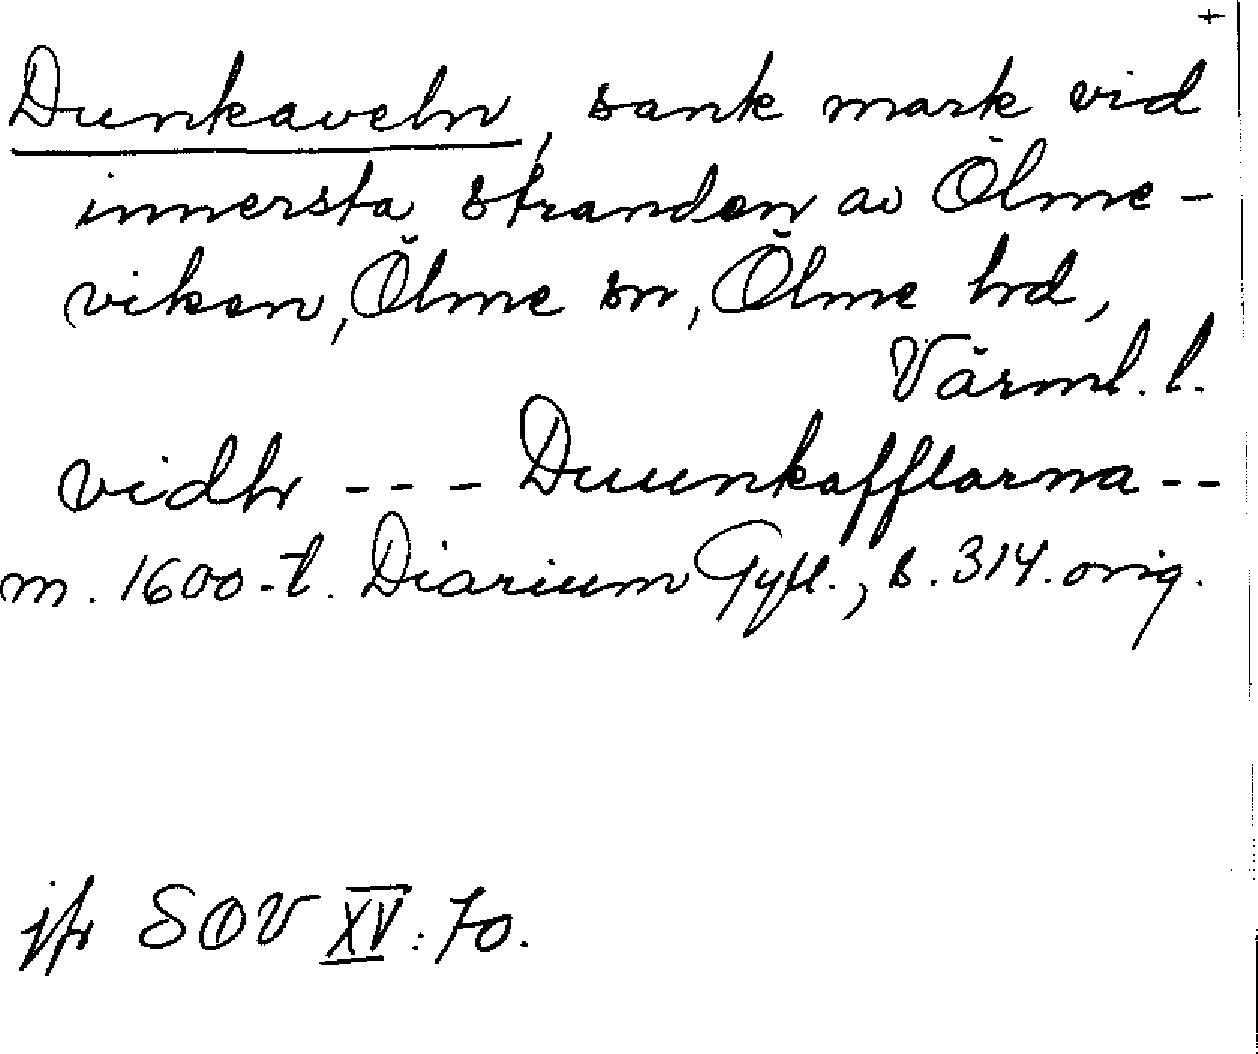 +
Dunkaveln, sank mark vid
innersta stranden av Ölme-
viken, Ölme sn, Ölme hd,
Värml. l.
vidh --- Duunkafflarna --
m. 1600-t. Diarium Gyll., s. 314. orig.
jfr SOV XV: 70.